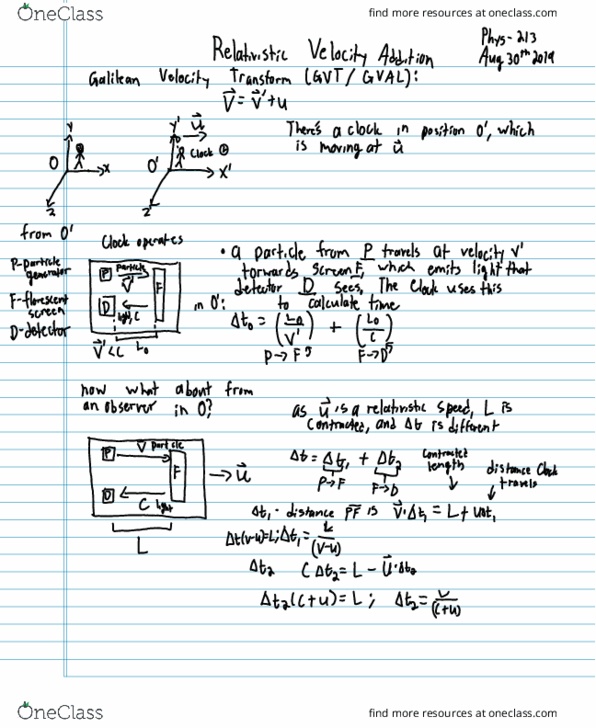 OneClass
find more resources at oneclass.com
Phys-213
Aug 30th 2019
Relativistic Velocity Addition
Galilean Velocity Transform (GVT/GVAL):
V⃗ = V⃗' + u
There's a clock in position O', which
is moving at u⃗
Y
O
X
Z
Y'
u⃗
Clock
O'
X'
Z'
from O'
P-particle
generator
F-florescent
screen
D-detector
Clock operates
P
particle
V⃗'
F
D
light, C
V⃗'<C
L₀
• a particle from P travels at velocity V'
torwards screen F, which emits light that
detector D sees. The Clock uses this
in O': to calculate time
Δt₀ = (L₀/V') + (L₀/C)
P→F
F→D
now what about from
an observer in O?
as u⃗ is a relativistic speed, L is
contracted, and Δt is different
P
V particle
F
D
C light
→ u⃗
L
Δt = Δt₁ + Δt₂
P→F
F→D
contracted
length
distance clock
travels
Δt₁ - distance PF is V⃗·Δt₁ = L + uΔt₁
Δt(v-u)=L; Δt₁ = L/(V-u)
Δt₂ CΔt₂ = L - U⃗·Δt₂
Δt₂(C+u) = L; Δt₂ = L/(C+u)
OneClass
find more resources at oneclass.com